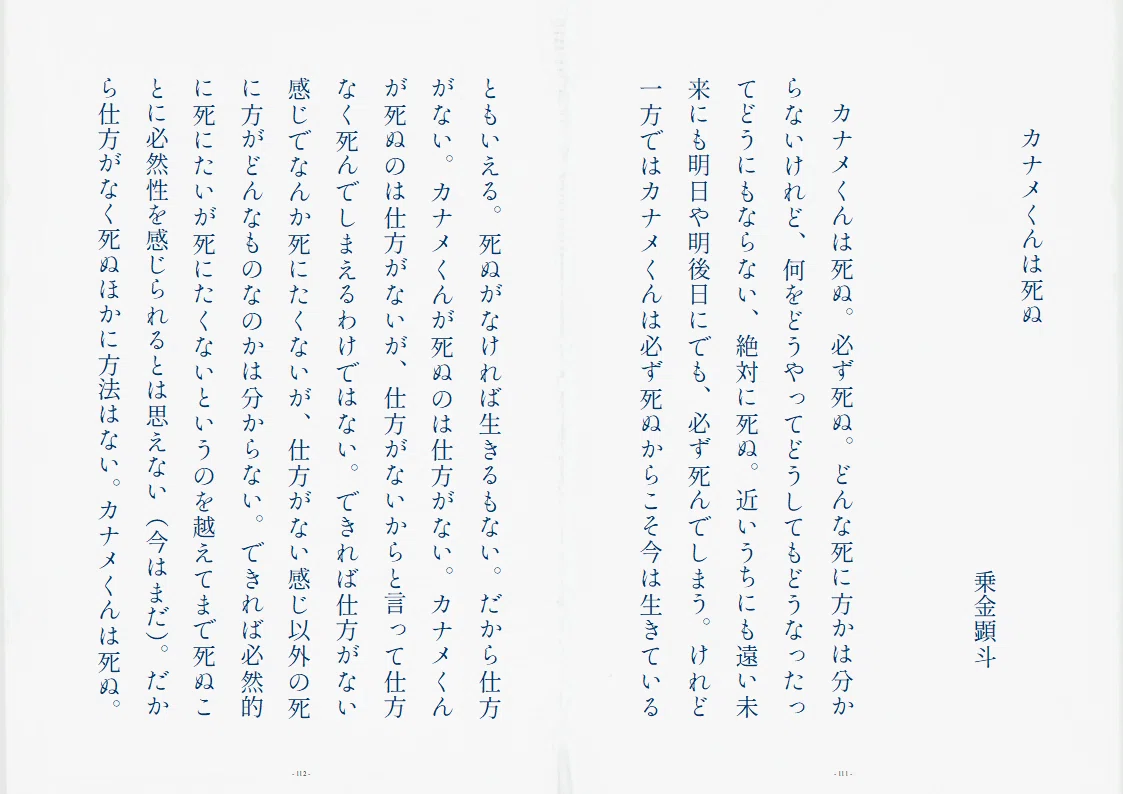 カナメくんは死ぬ
乗金顕斗
カナメくんは死ぬ。必ず死ぬ。どんな死に方かは分か
らないけれど、何をどうやってどうしてもどうなったっ
てどうにもならない、絶対に死ぬ。近いうちにも遠い未
来にも明日や明後日にでも、必ず死んでしまう。けれど
一方ではカナメくんは必ず死ぬからこそ今は生きている
- 111 -
ともいえる。死ぬがなければ生きるもない。だから仕方
がない。カナメくんが死ぬのは仕方がない。カナメくん
が死ぬのは仕方がないが、仕方がないからと言って仕方
なく死んでしまえるわけではない。できれば仕方がない
感じでなんか死にたくないが、仕方がない感じ以外の死
に方がどんなものなのかは分からない。できれば必然的
に死にたいが死にたくないというのを越えてまで死ぬこ
とに必然性を感じられるとは思えない（今はまだ）。だか
ら仕方がなく死ぬほかに方法はない。カナメくんは死ぬ。
- 112 -